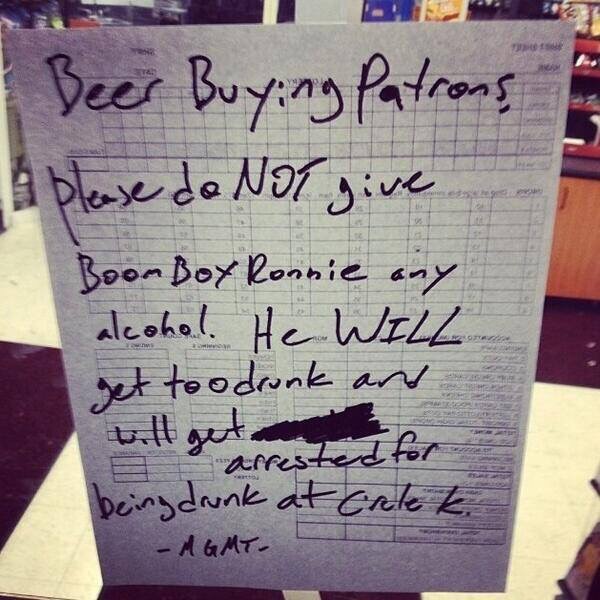 Beer Buying Patrons,
please do NOT give
Boom Box Ronnie any
alcohol. He WILL
get too drunk and
will get
arrested for
being drunk at Circle K.
- MGMT-